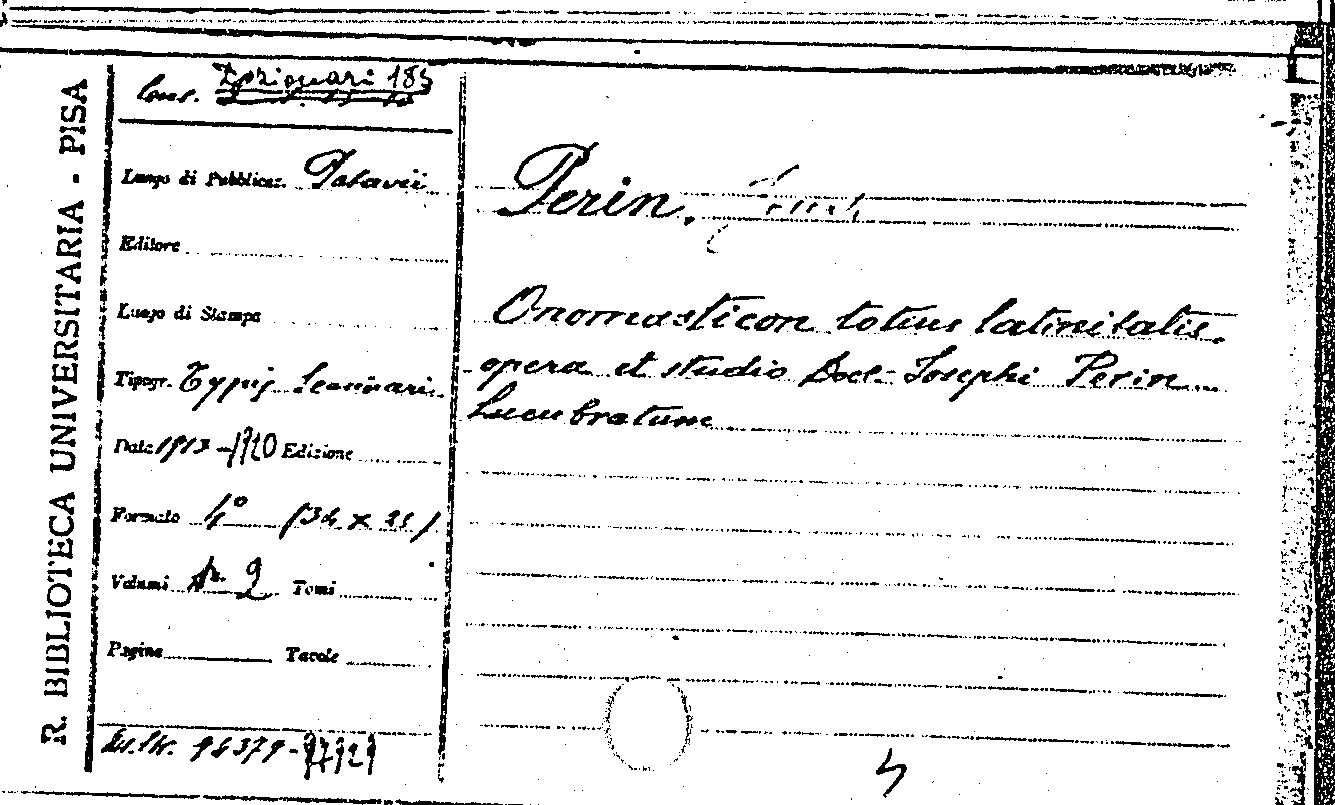 R. BIBLIOTECA UNIVERSITARIA - PISA
Cons. Dizionari 185
Luogo di Pubblicaz. Patavii
Editore
Luogo di Stampa
Tipogr. Typis Seminarii
Data 1913-1920 Edizione
Formato 4° (34 x 25)
Volumi N. 2 Tomi
Pagine Tavole
96379-97929
Perin,
Onomasticon totius latinitatis.
opera et studio Doct. Josephi Perin
lucubratum